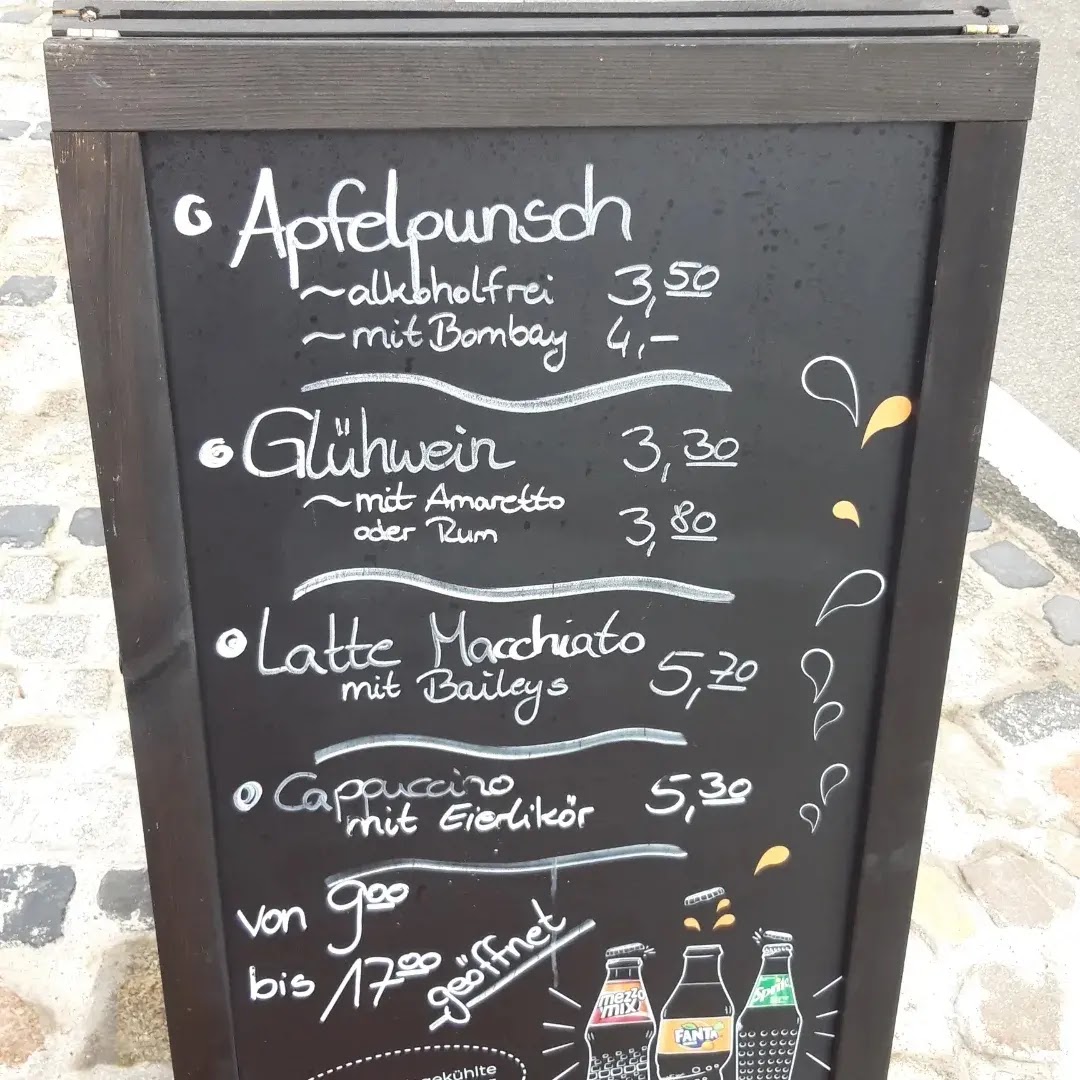 Apfelpunsch
~alkoholfrei 3,50
~mit Bombay 4,–
Glühwein 3,30
~mit Amaretto
oder Rum 3,80
Latte Macchiato
mit Baileys 5,70
Cappuccino
mit Eierlikör 5,30
von 9⁰⁰
bis 17⁰⁰ geöffnet
mezzo
mix
FANTA
Sprite